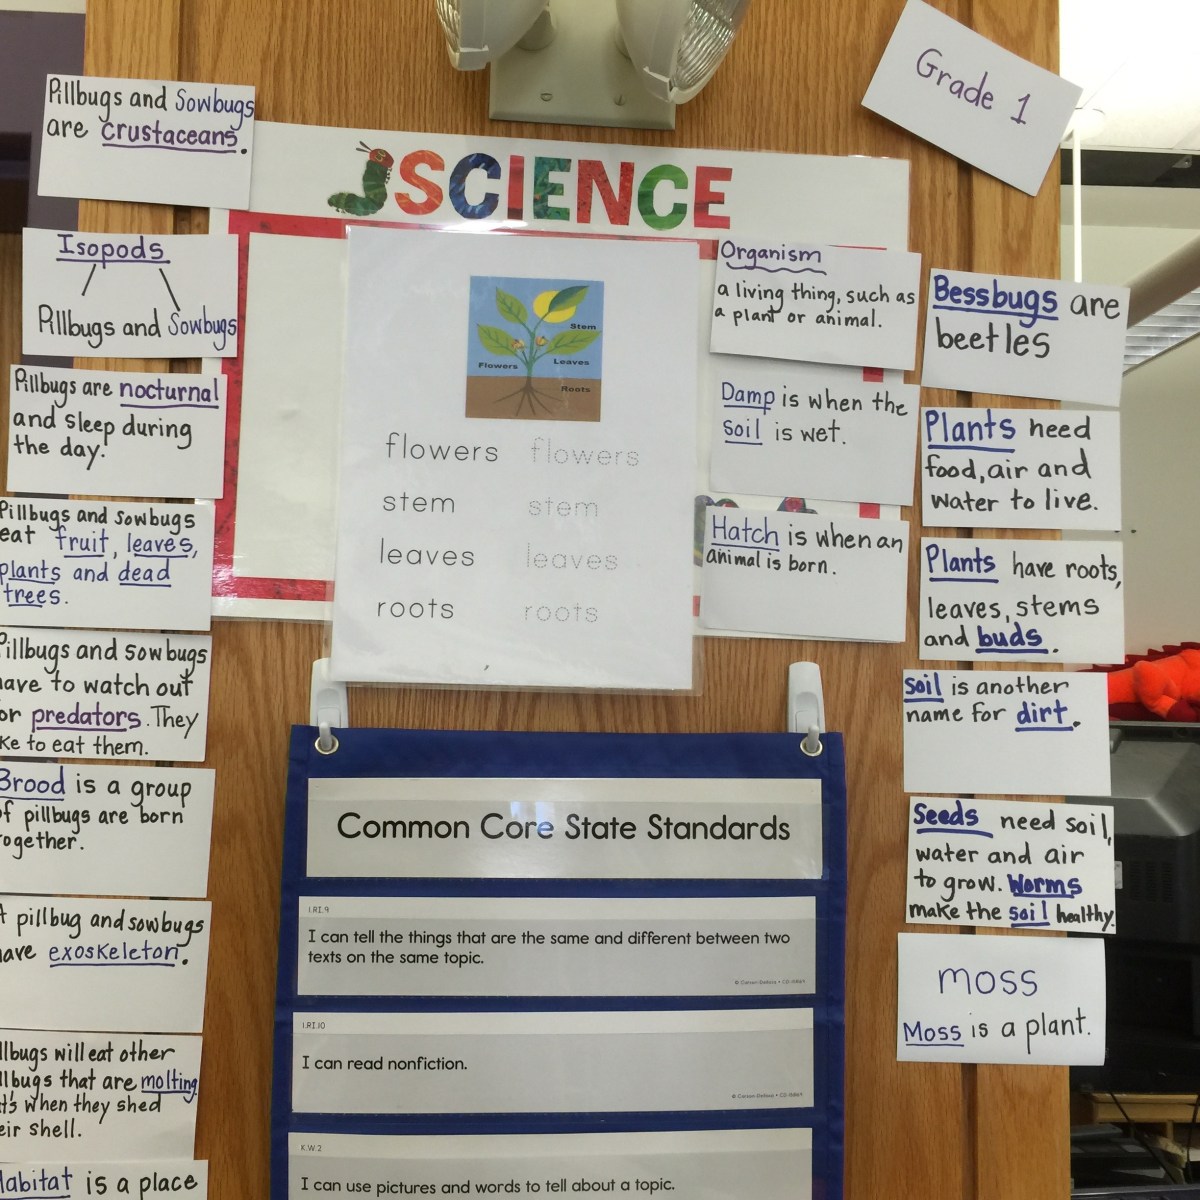 Grade 1
Pillbugs and Sowbugs
are crustaceans.
Isopods
Pillbugs and Sowbugs
Pillbugs are nocturnal
and sleep during
the day.
Pillbugs and sowbugs
eat fruit, leaves,
plants and dead
trees.
Pillbugs and sowbugs
have to watch out
for predators. They
like to eat them.
Brood is a group
of pillbugs are born
together.
A pillbug and sowbugs
have exoskeleton.
Pillbugs will eat other
pillbugs that are molting.
It's when they shed
their shell.
Habitat is a place
SCIENCE
Stem
Flowers
Leaves
Roots
flowers flowers
stem stem
leaves leaves
roots roots
Organism
a living thing, such as
a plant or animal.
Damp is when the
soil is wet.
Hatch is when an
animal is born.
Bessbugs are
beetles
Plants need
food, air and
water to live.
Plants have roots,
leaves, stems
and buds.
Soil is another
name for dirt.
Seeds need soil,
water and air
to grow. Worms
make the soil healthy.
moss
Moss is a plant.
Common Core State Standards
1.RI.9
I can tell the things that are the same and different between two
texts on the same topic.
© Carson-Dellosa • CD-158169
1.RI.10
I can read nonfiction.
© Carson-Dellosa • CD-158169
K.W.2
I can use pictures and words to tell about a topic.